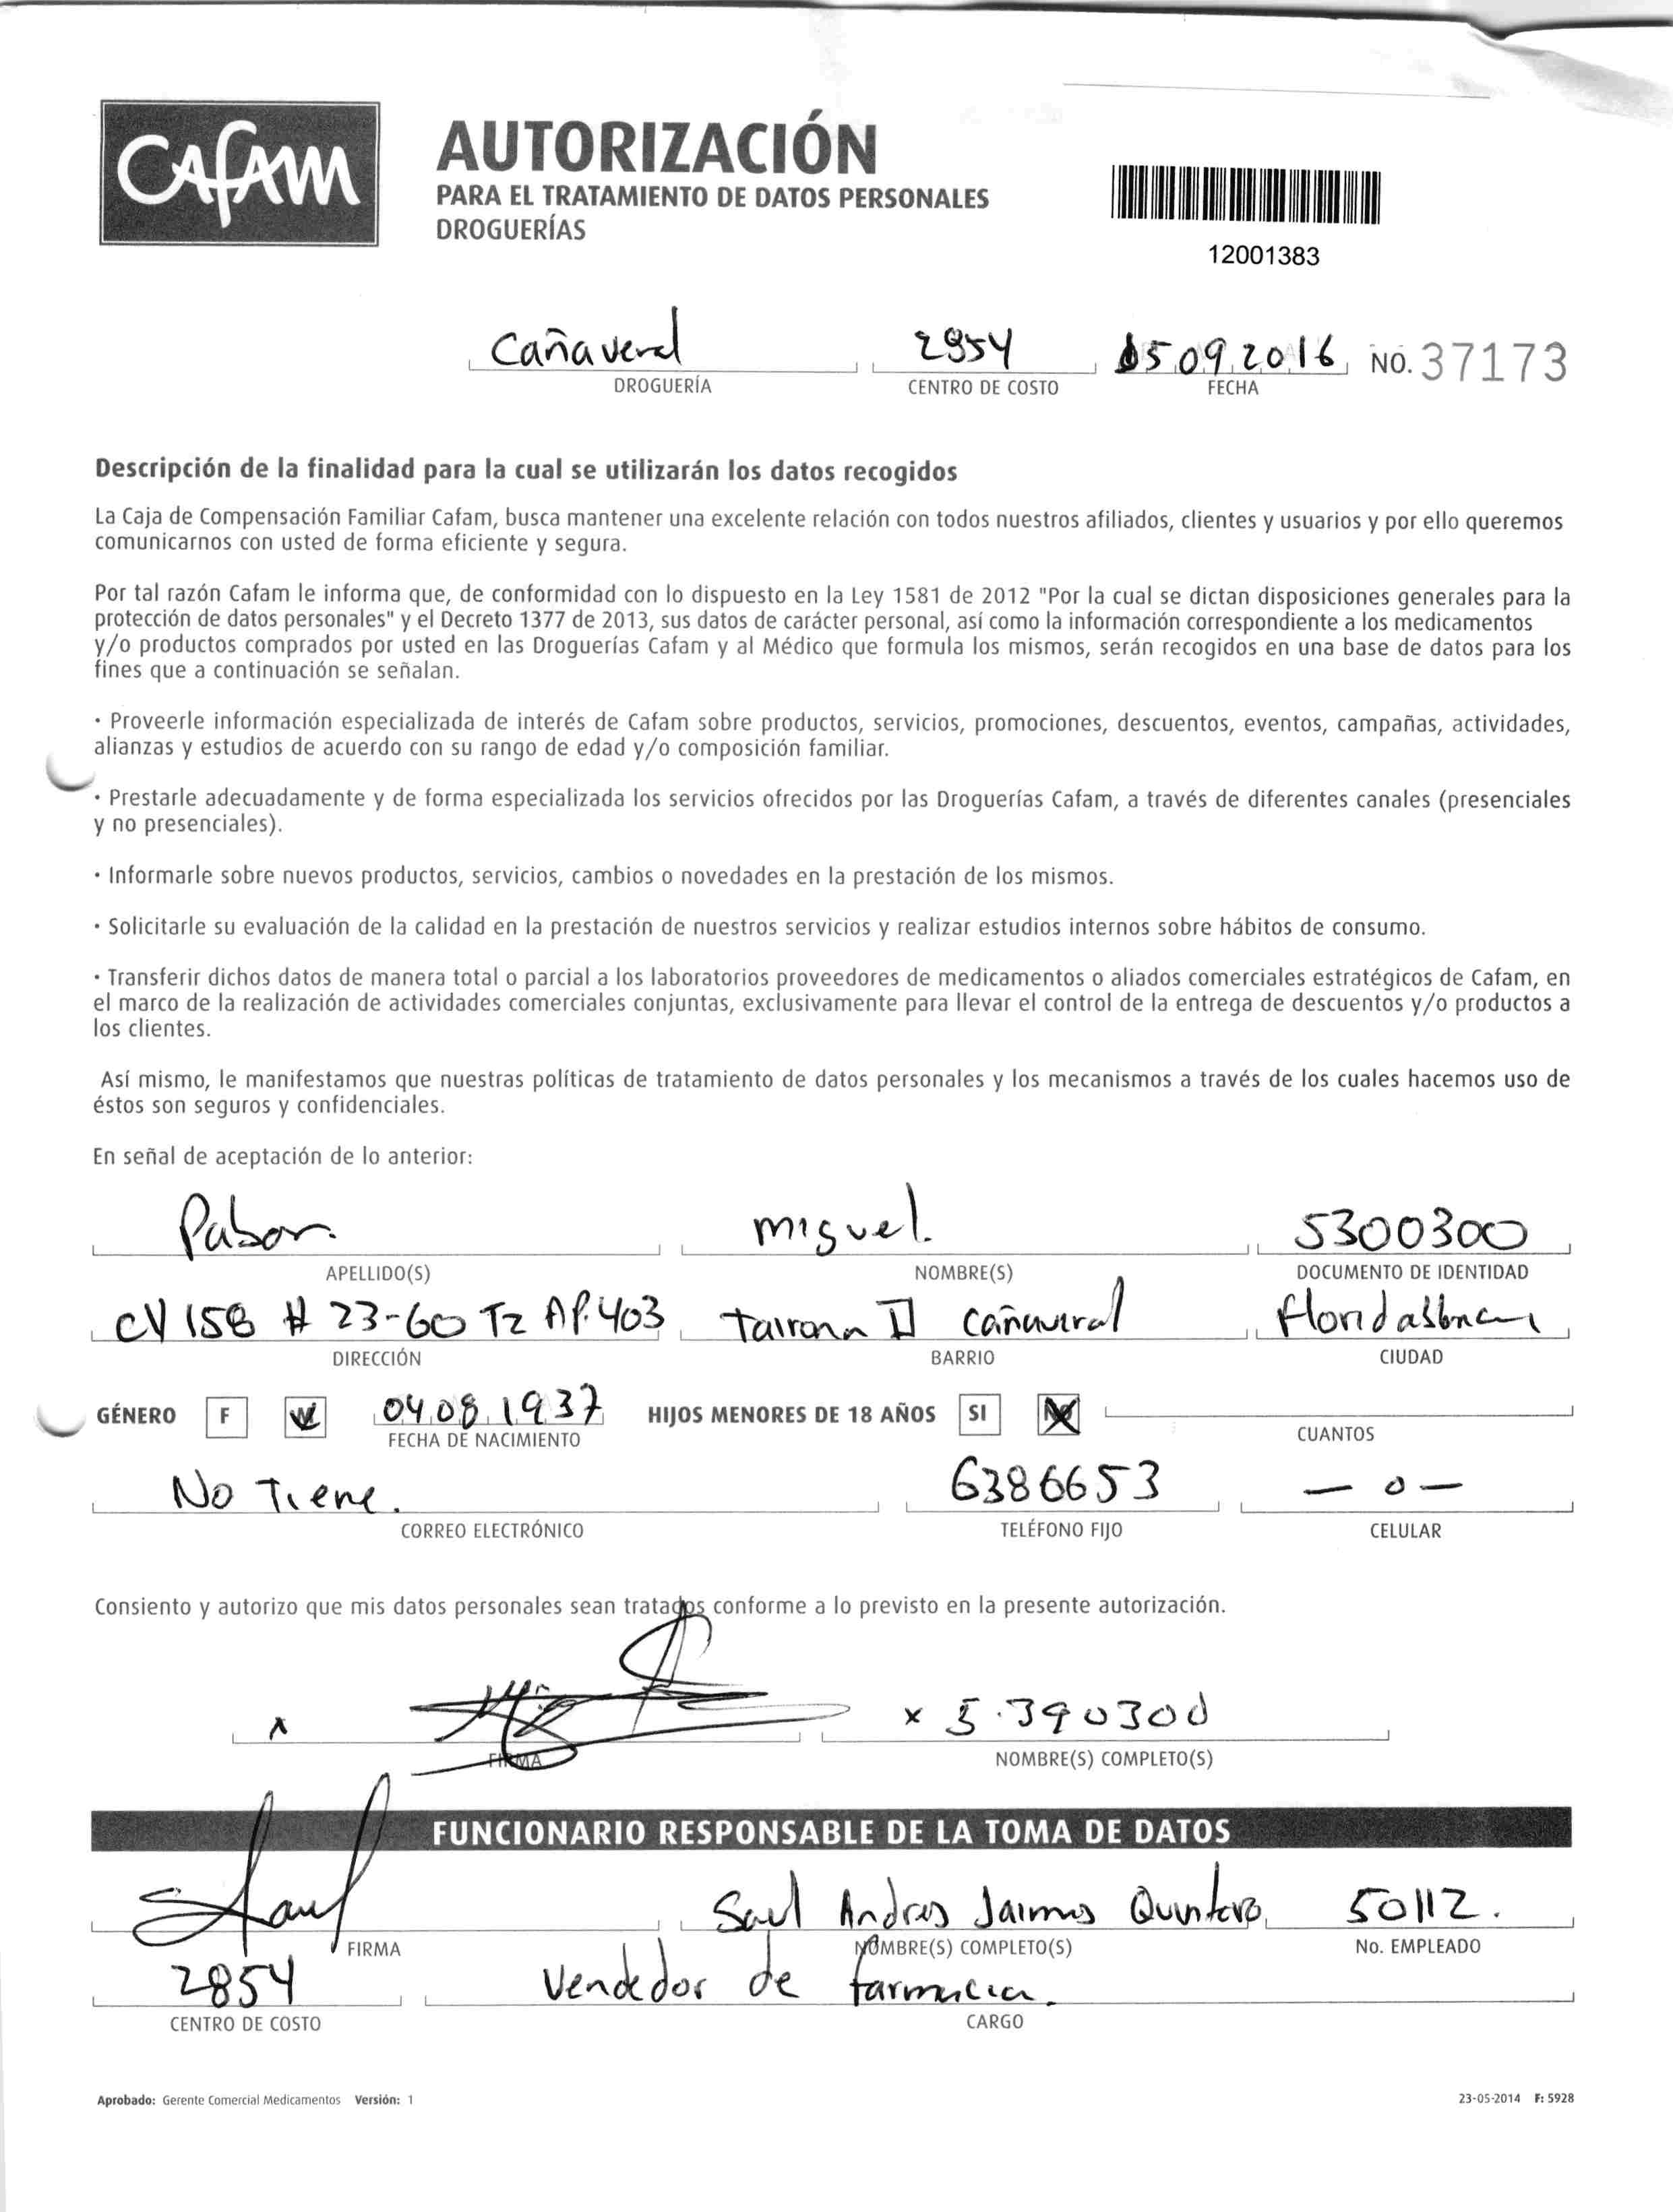 CAFAM
AUTORIZACIÓN
PARA EL TRATAMIENTO DE DATOS PERSONALES
DROGUERÍAS
12001383
Cañaveral 2854 05 09 2016 NO. 37173
DROGUERÍA CENTRO DE COSTO FECHA
Descripción de la finalidad para la cual se utilizarán los datos recogidos
La Caja de Compensación Familiar Cafam, busca mantener una excelente relación con todos nuestros afiliados, clientes y usuarios y por ello queremos
comunicarnos con usted de forma eficiente y segura.
Por tal razón Cafam le informa que, de conformidad con lo dispuesto en la Ley 1581 de 2012 "Por la cual se dictan disposiciones generales para la
protección de datos personales" y el Decreto 1377 de 2013, sus datos de carácter personal, así como la información correspondiente a los medicamentos
y/o productos comprados por usted en las Droguerías Cafam y al Médico que formula los mismos, serán recogidos en una base de datos para los
fines que a continuación se señalan.
· Proveerle información especializada de interés de Cafam sobre productos, servicios, promociones, descuentos, eventos, campañas, actividades,
alianzas y estudios de acuerdo con su rango de edad y/o composición familiar.
· Prestarle adecuadamente y de forma especializada los servicios ofrecidos por las Droguerías Cafam, a través de diferentes canales (presenciales
y no presenciales).
· Informarle sobre nuevos productos, servicios, cambios o novedades en la prestación de los mismos.
· Solicitarle su evaluación de la calidad en la prestación de nuestros servicios y realizar estudios internos sobre hábitos de consumo.
· Transferir dichos datos de manera total o parcial a los laboratorios proveedores de medicamentos o aliados comerciales estratégicos de Cafam, en
el marco de la realización de actividades comerciales conjuntas, exclusivamente para llevar el control de la entrega de descuentos y/o productos a
los clientes.
Así mismo, le manifestamos que nuestras políticas de tratamiento de datos personales y los mecanismos a través de los cuales hacemos uso de
éstos son seguros y confidenciales.
En señal de aceptación de lo anterior:
Pabon miguel. 5300300
APELLIDO(S) NOMBRE(S) DOCUMENTO DE IDENTIDAD
# 23-60 T2 AP. 403 Tairona II Cañaveral Floridablanca
DIRECCIÓN BARRIO CIUDAD
GÉNERO F M 04 08 1937 HIJOS MENORES DE 18 AÑOS SI NO
FECHA DE NACIMIENTO CUANTOS
No Tiene. 6386653 — 0 —
CORREO ELECTRÓNICO TELÉFONO FIJO CELULAR
Consiento y autorizo que mis datos personales sean tratados conforme a lo previsto en la presente autorización.
x x 5.390300
FIRMA NOMBRE(S) COMPLETO(S)
FUNCIONARIO RESPONSABLE DE LA TOMA DE DATOS
Saul Andres Jaimes Quintero 50112.
FIRMA NOMBRE(S) COMPLETO(S) No. EMPLEADO
2854 Vendedor de farmacia.
CENTRO DE COSTO CARGO
Aprobado: Gerente Comercial Medicamentos Versión: 1 23-05-2014 F: 5928